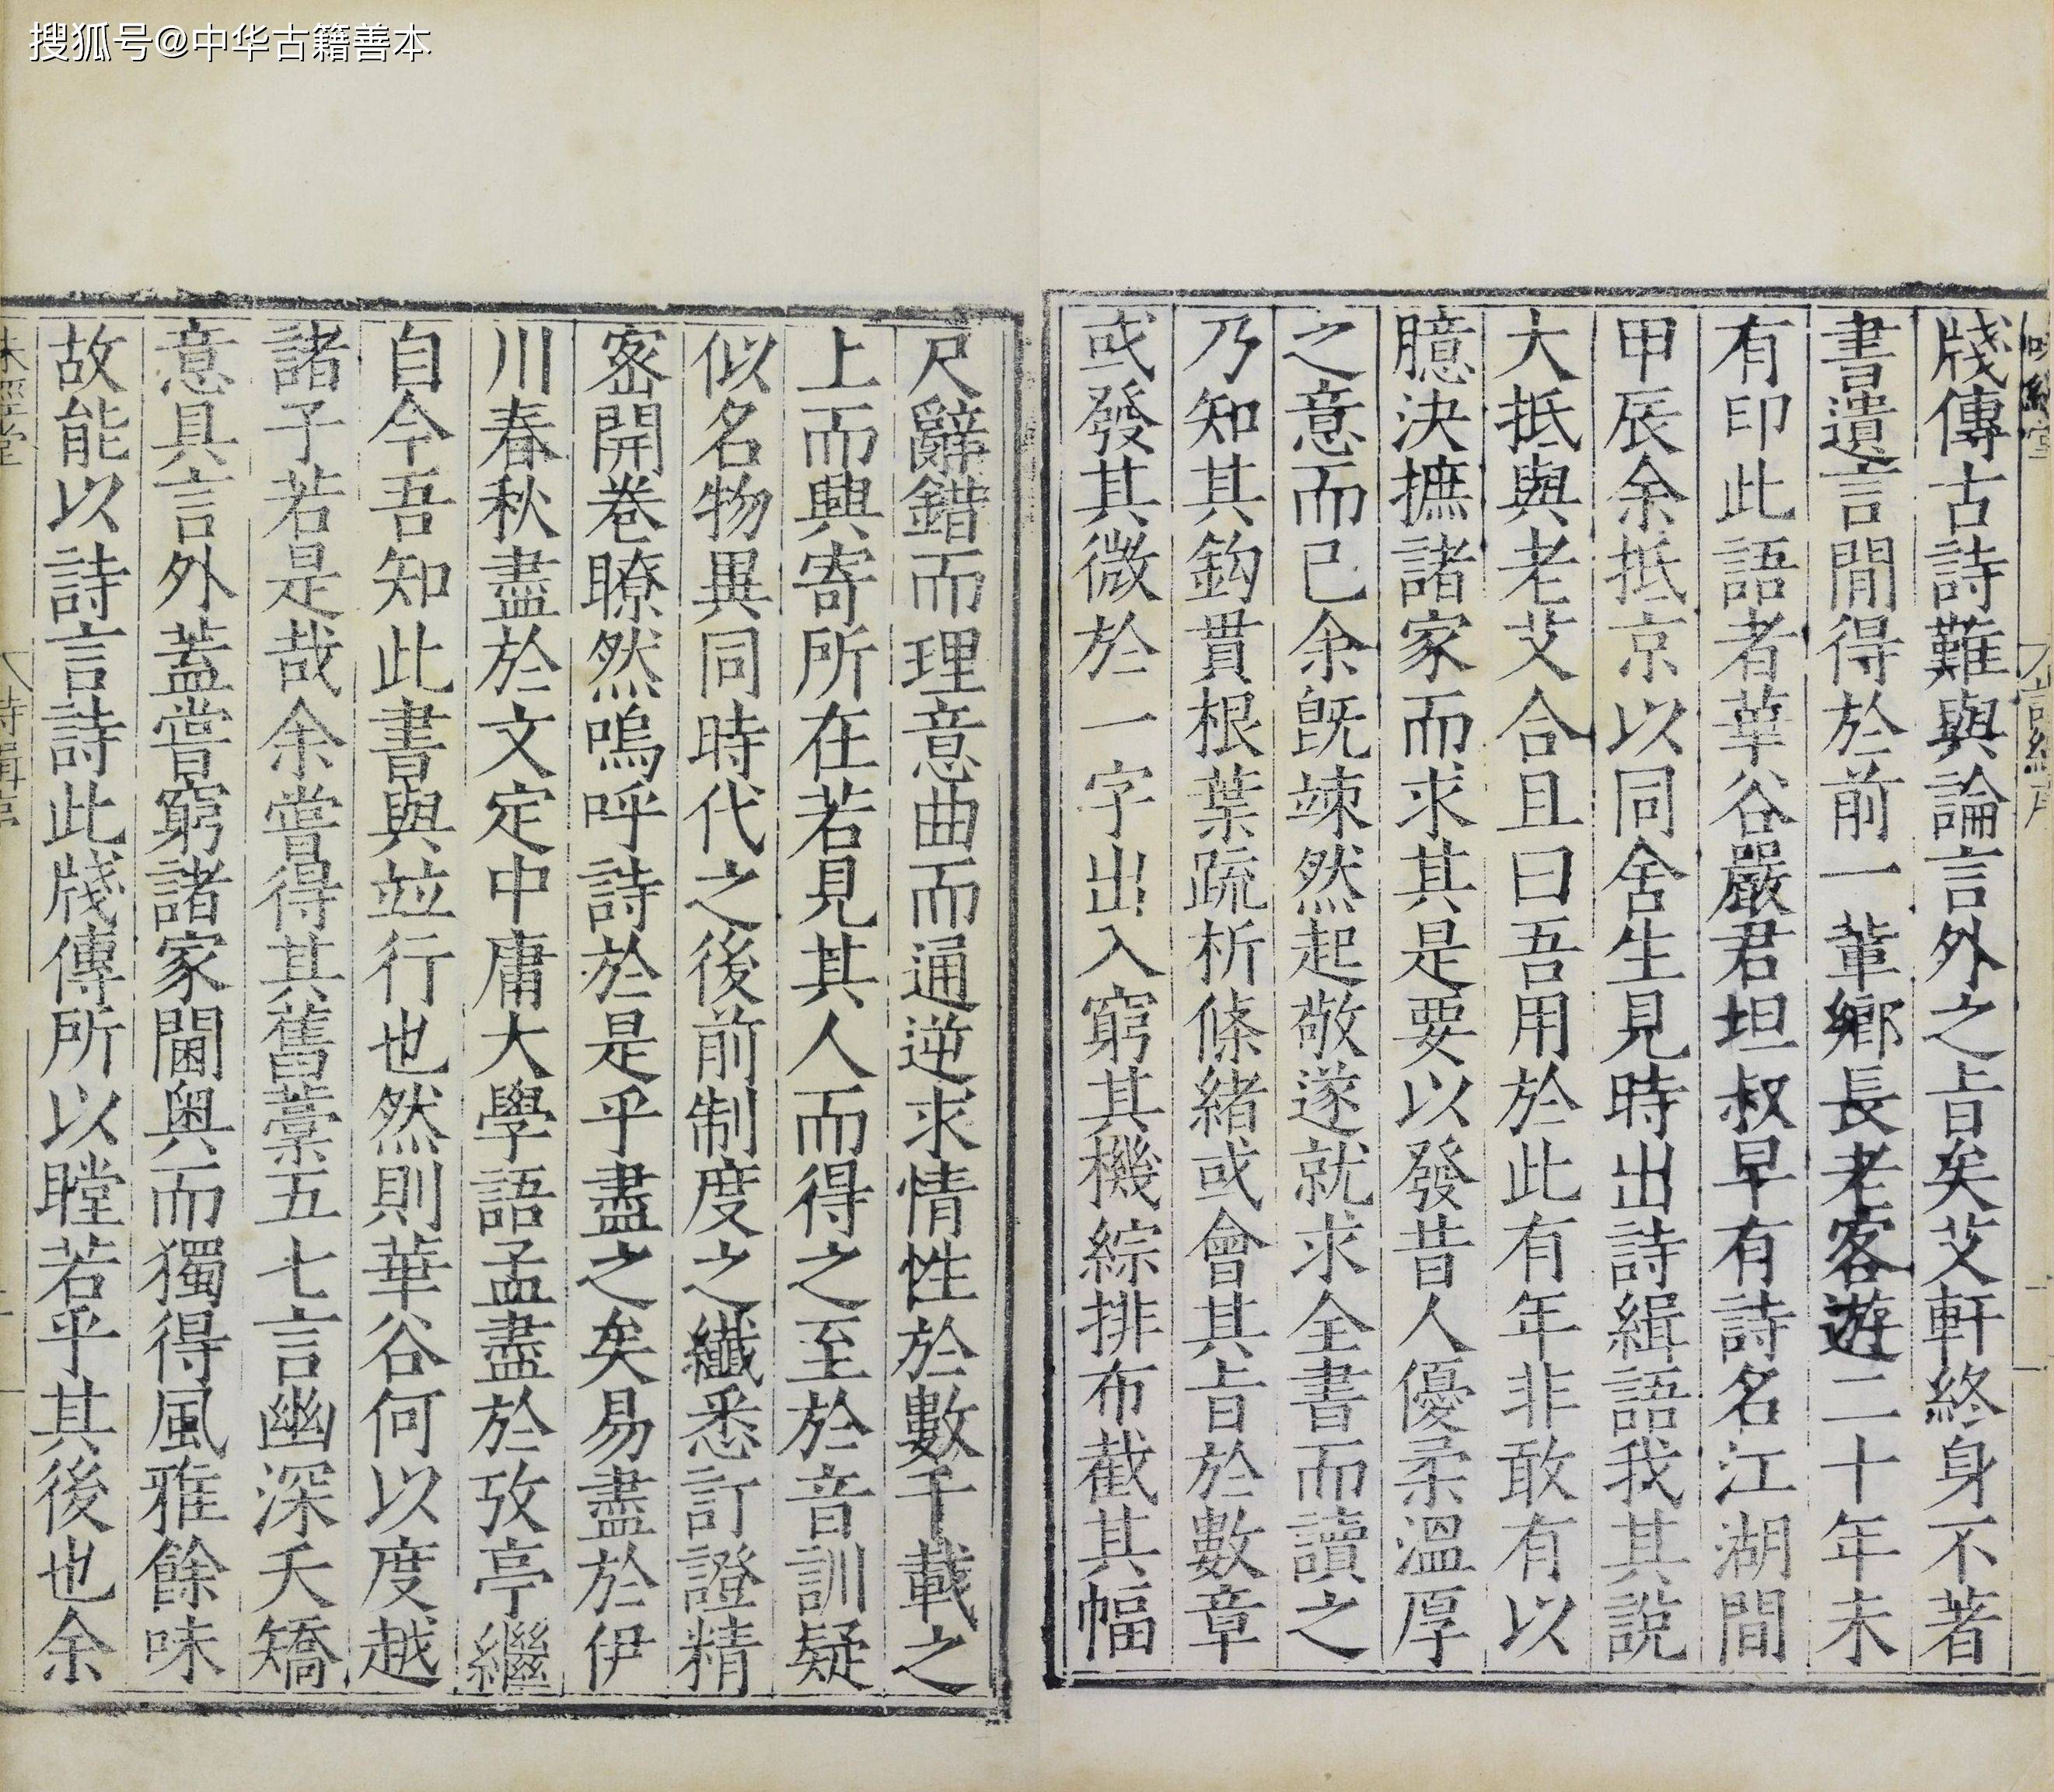 搜狐号@中华古籍善本
牋傳古詩難與論言外之旨矣艾軒終身不著
書遺言間得於前一輩鄉長老客遊二十年未
有印此語者華谷嚴君坦叔早有詩名江湖間
甲辰余抵京以同舍生見時出詩緝語我其說
大抵與老艾合且曰吾用於此有年非敢有以
臆決摭諸家而求其是要以發昔人優柔溫厚
之意而已余旣竦然起敬遂就求全書而讀之
乃知其鈎貫根葉疏析條緒或會其旨於數章
或發其微於一字出入窮其機綜排布截其幅
尺辭錯而理意曲而通逆求情性於數千載之
上而興寄所在若見其人而得之至於音訓疑
似名物異同時代之後前制度之纖悉訂證精
宻開卷瞭然嗚呼詩於是乎盡之矣易盡於伊
川春秋盡於文定中庸大學語孟盡於攷亭繼
自今吾知此書與並行也然則華谷何以度越
諸子若是哉余嘗得其舊藁五七言幽深夭矯
意具言外蓋嘗窮諸家閫奥而獨得風雅餘味
故能以詩言詩此牋傳所以瞠若乎其後也余